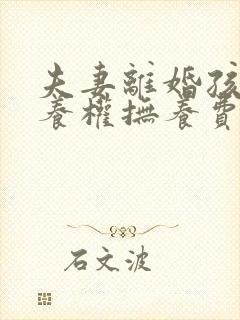 夫妻離婚孩
養權撫養費
石文波